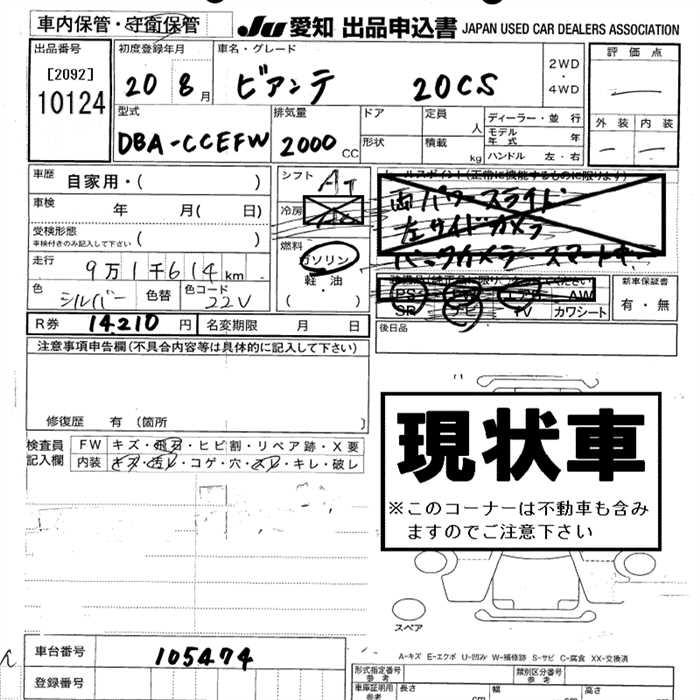 車内保管・守衛保管
JU 愛知 出品申込書 JAPAN USED CAR DEALERS ASSOCIATION
出品番号
[2092]
10124
初度登録年月
20 8月
車名・グレード
ビアンテ 20CS
2WD
・
4WD
評価点
外装 内装
型式
DBA-CCEFW
排気量
2000 CC
ドア
形状
定員 人
積載 kg
ディーラー・並 行
モデル年式 年
ハンドル 左・右
車歴 自家用・( )
車検 年 月( 日)
受検形態
車検付きのみ記入して下さい ( )
走行 9万1千614km
色 シルバー 色替 色コード 22V
シフト AT
冷房
燃料
ガソリン
軽・油
( ・ )
セールスポイント(正常に機能するものに限ります)
両パワースライド
左サイドカメラ
バックカメラ・スマートキー
AW
SR ナビ TV カワシート
新車保証書
有・無
後日品
R券 14210円 名変期限 月 日
注意事項申告欄(不具合内容等は具体的に記入して下さい)
修復歴 有(箇所 )
検査員記入欄
FW キズ・飛石・ヒビ割・リペア跡・X要
内装 キズ・汚レ・コゲ・穴・スレ・キレ・破レ
現状車
※このコーナーは不動車も含み
ますのでご注意下さい
スペア
A-キズ E-エクボ U-凹ミ W-補修跡 S-サビ C-腐食 XX-交換済
車台番号 105474
登録番号
形式指定番号
参考
類別区分番号
参考
車庫証明用
参考
長さ cm
幅 cm
高さ cm